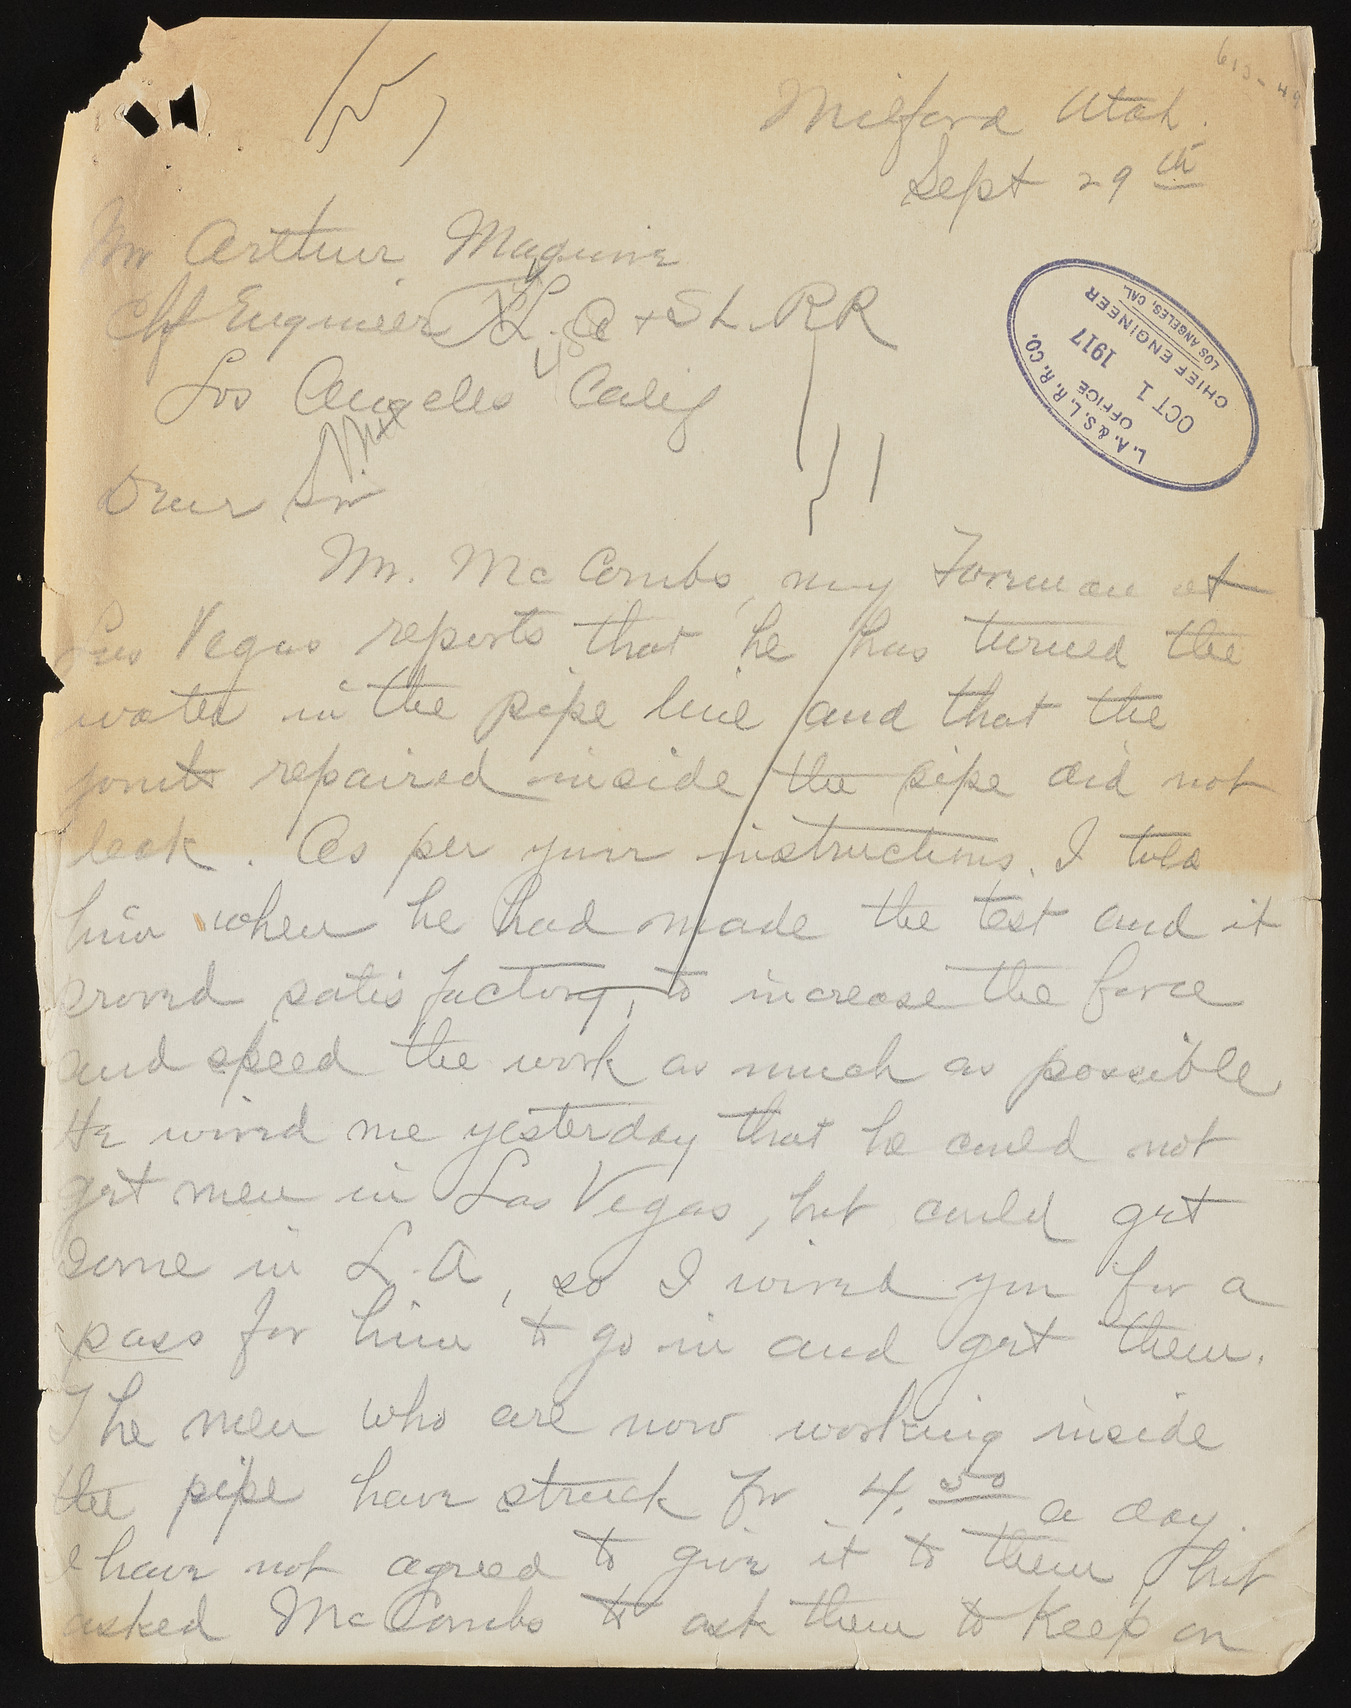 613-49
Milford Utah.
Sept 29th
Mr Arthur Maguire
Chf Engineer L.A + SL. RR
Los Angeles Calif
L. A. & S. L. R. R. CO.
OFFICE
OCT 1 1917
CHIEF ENGINEER
LOS ANGELES, CAL.
Dear Sir
Mr. McCombs, my Forman at
Las Vegas reports that he has turned the
water in the pipe line and that the
joints repaired inside the pipe did not
leak. As per your instructions, I told
him when he had made the test and it
proved satisfactory, to increase the force
and speed the work as much as possible
He wired me yesterday that he could not
get men in Las Vegas, but could get
some in L.A, so I wired you for a
pass for him to go in and get them.
The men who are now working inside
the pipe have struck for 4.50 a day.
I have not agreed to give it to them but
asked McCombs to ask them to keep on